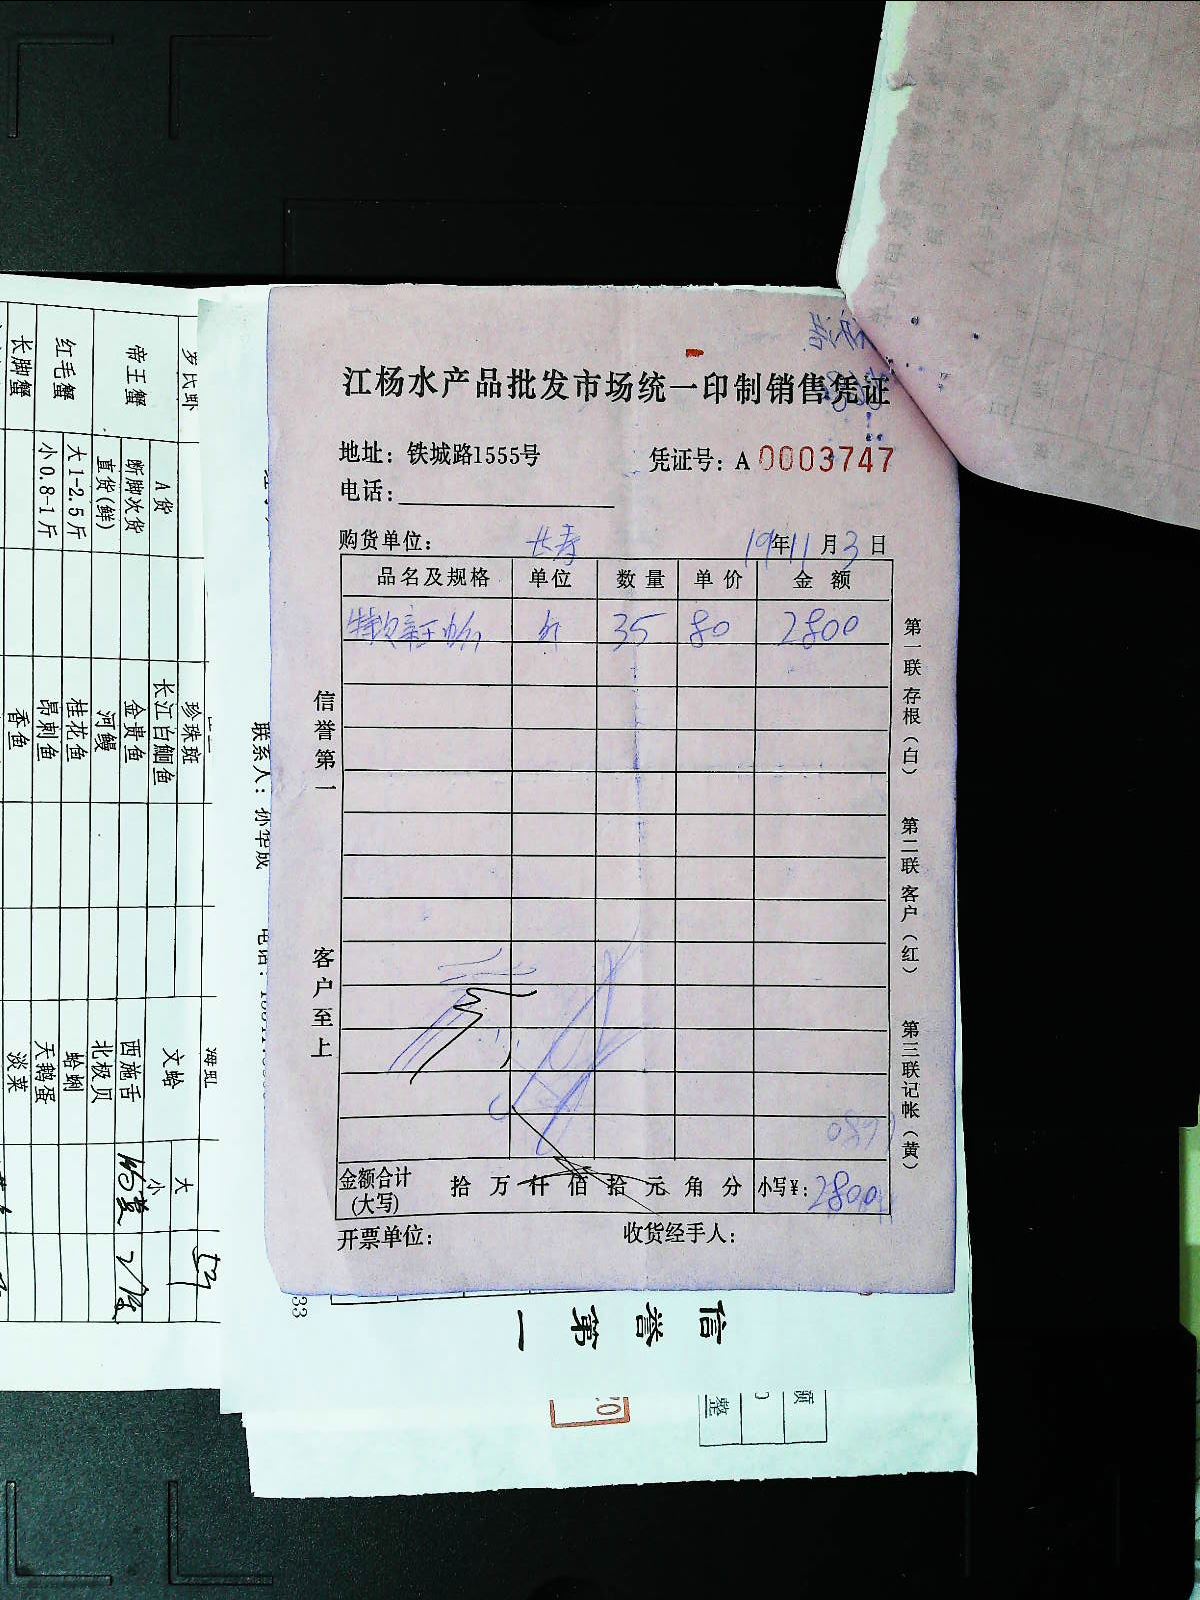 江杨水产品批发市场统一印制销售凭证
地址：铁城路1555号
凭证号：A 0003747
电话：
购货单位： 长寿 19年11月3日
品名及规格 单位 数量 单价 金额
斤 35 80 2800
信誉第一
客户至上
第一联 存根（白）
第二联 客户（红）
第三联 记帐（黄）
金额合计(大写) 拾 万 仟 佰 拾 元 角 分 小写¥: 2800
开票单位：
收货经手人：
罗氏虾
帝王蟹
红毛蟹
长脚蟹
A货
断脚次货
直货(鲜)
大1-2.5斤
小0.8-1斤
珍珠斑
长江白鮰鱼
金贵鱼
河鳗
桂花鱼
昂刺鱼
香鱼
海虹
文蛤
西施舌
北极贝
蛤蜊
天鹅蛋
淡菜
大
小
联系人：孙华成
电话：
33
信誉第一
额
整